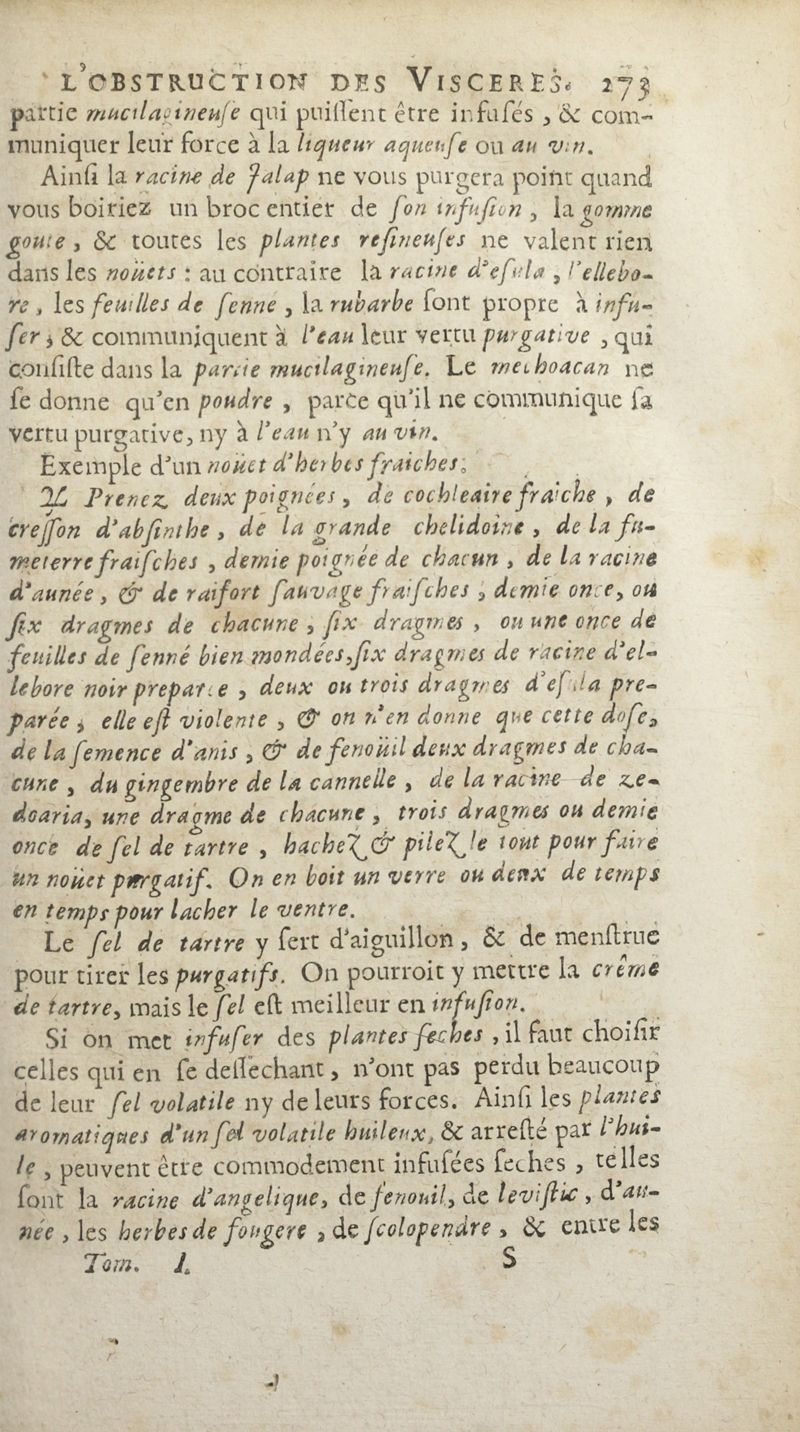 L'OBSTRUCTION DES VISCERES. 273
partie mucilagineuse qui puissent être infusés, & com-
muniquer leur force à la liqueur aqueuse ou au vin.
Ainsi la racine de Jalap ne vous purgera point quand
vous boiriez un broc entier de son infusion, la gomme
goute, & toutes les plantes resineuses ne valent rien
dans les noüets : au contraire la racine d'esula, l'ellebo-
re, les feuilles de senne, la rubarbe sont propre à infu-
ser; & communiquent à l'eau leur vertu purgative, qui
consiste dans la partie mucilagineuse. Le mechoacan ne
se donne qu'en poudre, parce qu'il ne communique sa
vertu purgative, ny à l'eau n'y au vin.
Exemple d'un noüet d'herbes fraiches.
♃ Prenez deux poignées, de cochleaire fraiche, de
cresson d'absinthe, de la grande chelidoine, de la fu-
meterre fraisches, demie poignée de chacun, de la racine
d'aunée, & de raifort sauvage fraisches, demie once, ou
six dragmes de chacune, six dragmes, ou une once de
feuilles de senné bien mondées, six dragmes de racine d'el-
lebore noir preparée, deux ou trois dragmes d'esula pre-
parée, elle est violente, & on n'en donne que cette dose,
de la semence d'anis, & de fenoüil deux dragmes de cha-
cune, du gingembre de la cannelle, de la racine de ze-
doaria, une dragme de chacune, trois dragmes ou demie
once de sel de tartre, hachez & pilez le tout pour faire
un noüet purgatif. On en boit un verre ou deux de temps
en temps pour lacher le ventre.
Le sel de tartre y sert d'aiguillon, & de menstrue
pour tirer les purgatifs. On pourroit y mettre la crême
de tartre, mais le sel est meilleur en infusion.
Si on met infuser des plantes seches, il faut choisir
celles qui en se dessechant, n'ont pas perdu beaucoup
de leur sel volatile ny de leurs forces. Ainsi les plantes
aromatiques d'un sel volatile huileux, & arresté par l'hui-
le, peuvent être commodement infusées seches, telles
sont la racine d'angelique, de fenouil, de levistic, d'au-
née, les herbes de fougere, de scolopendre, & entre les
Tom. I. S